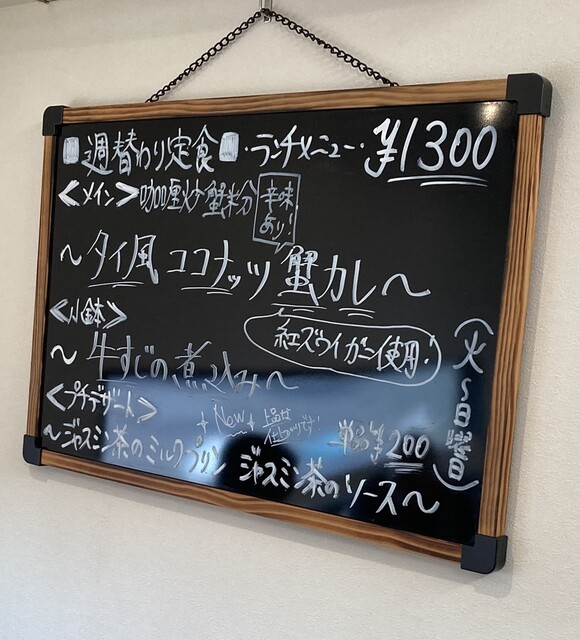 週替わり定食 ・ランチメニュー・ ¥1300
<メイン> 咖喱炒蟹米分 辛味あり!
～タイ風 ココナッツ 蟹カレー～
<小鉢>
紅ズワイガニ使用!
～牛すじの煮込み～
(火～日曜日)
<プチデザート>
+New+ 上品な仕上がりです!
単品¥200
～ジャスミン茶のミルクプリン ジャスミン茶のソース～